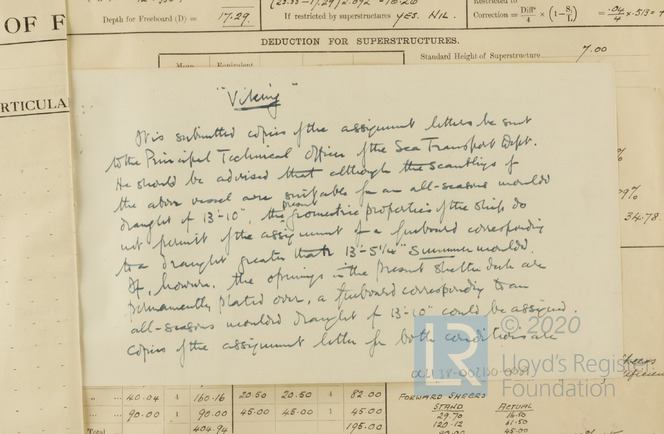 Depth for Freeboard (D) = 17.29.
If restricted by superstructures YES. NIL.
Restricted to
Correction = Diff/4 × (1 - S/L) = .04/4 × .513 =
OF F
DEDUCTION FOR SUPERSTRUCTURES.
Standard Height of Superstructure 7.00
RTICULA
"Viking"
It is submitted copies of the assignment letters be sent
to the Principal Technical Officer of the Sea Transport Dept.
He should be advised that although the scantlings of
the above vessel are suitable for an all-seasons moulded
draught of 13'-10", the present geometric properties of the ship do
not permit of the assignment of a freeboard corresponding
to a draught greater than 13'-5¼" Summer moulded.
If, however, the openings in the present shelter deck are
permanently plated over, a freeboard corresponding to an
all-seasons moulded draught of 13'-10" could be assigned.
Copies of the assignment letter for both conditions are
34.78
LR
© 2020
Lloyd's Register
Foundation
40.04 4 160.16 20.50 20.50 4 82.00
90.00 1 90.00 45.00 45.00 1 45.00
Total 404.94 195.00
FORWARD SHEERS
STAND ACTUAL
29.70 16.50
120.12 61.50